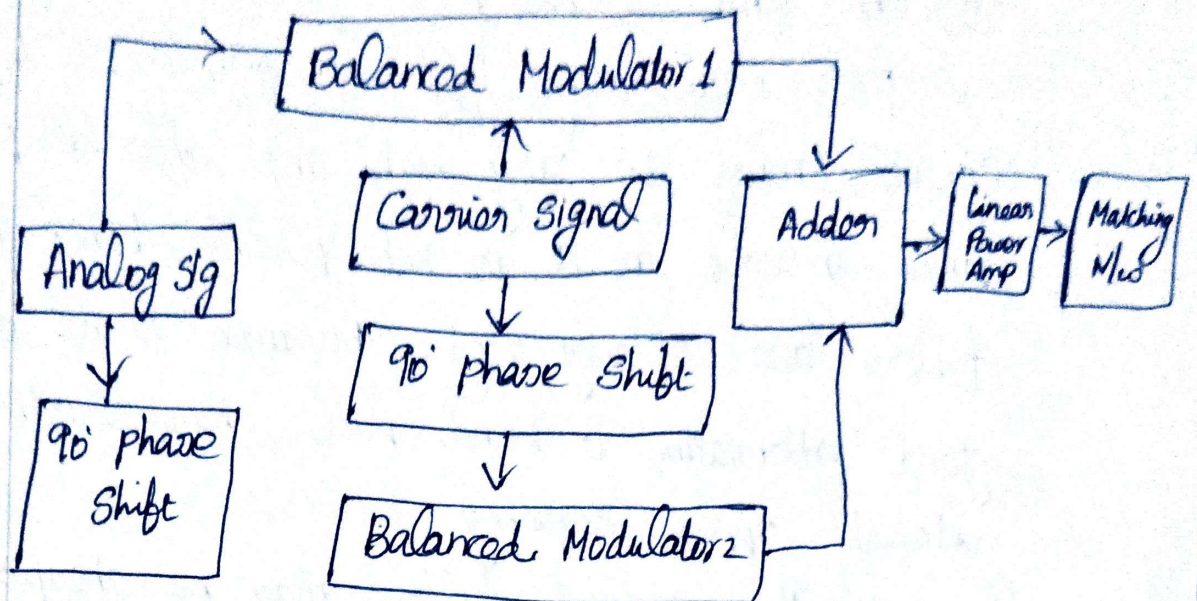 Balanced Modulator 1
Carrier Signal
Adder
Linear
Power
Amp
Matching
N/w
Analog sig
90° phase Shift
90° phase
Shift
Balanced Modulator 2